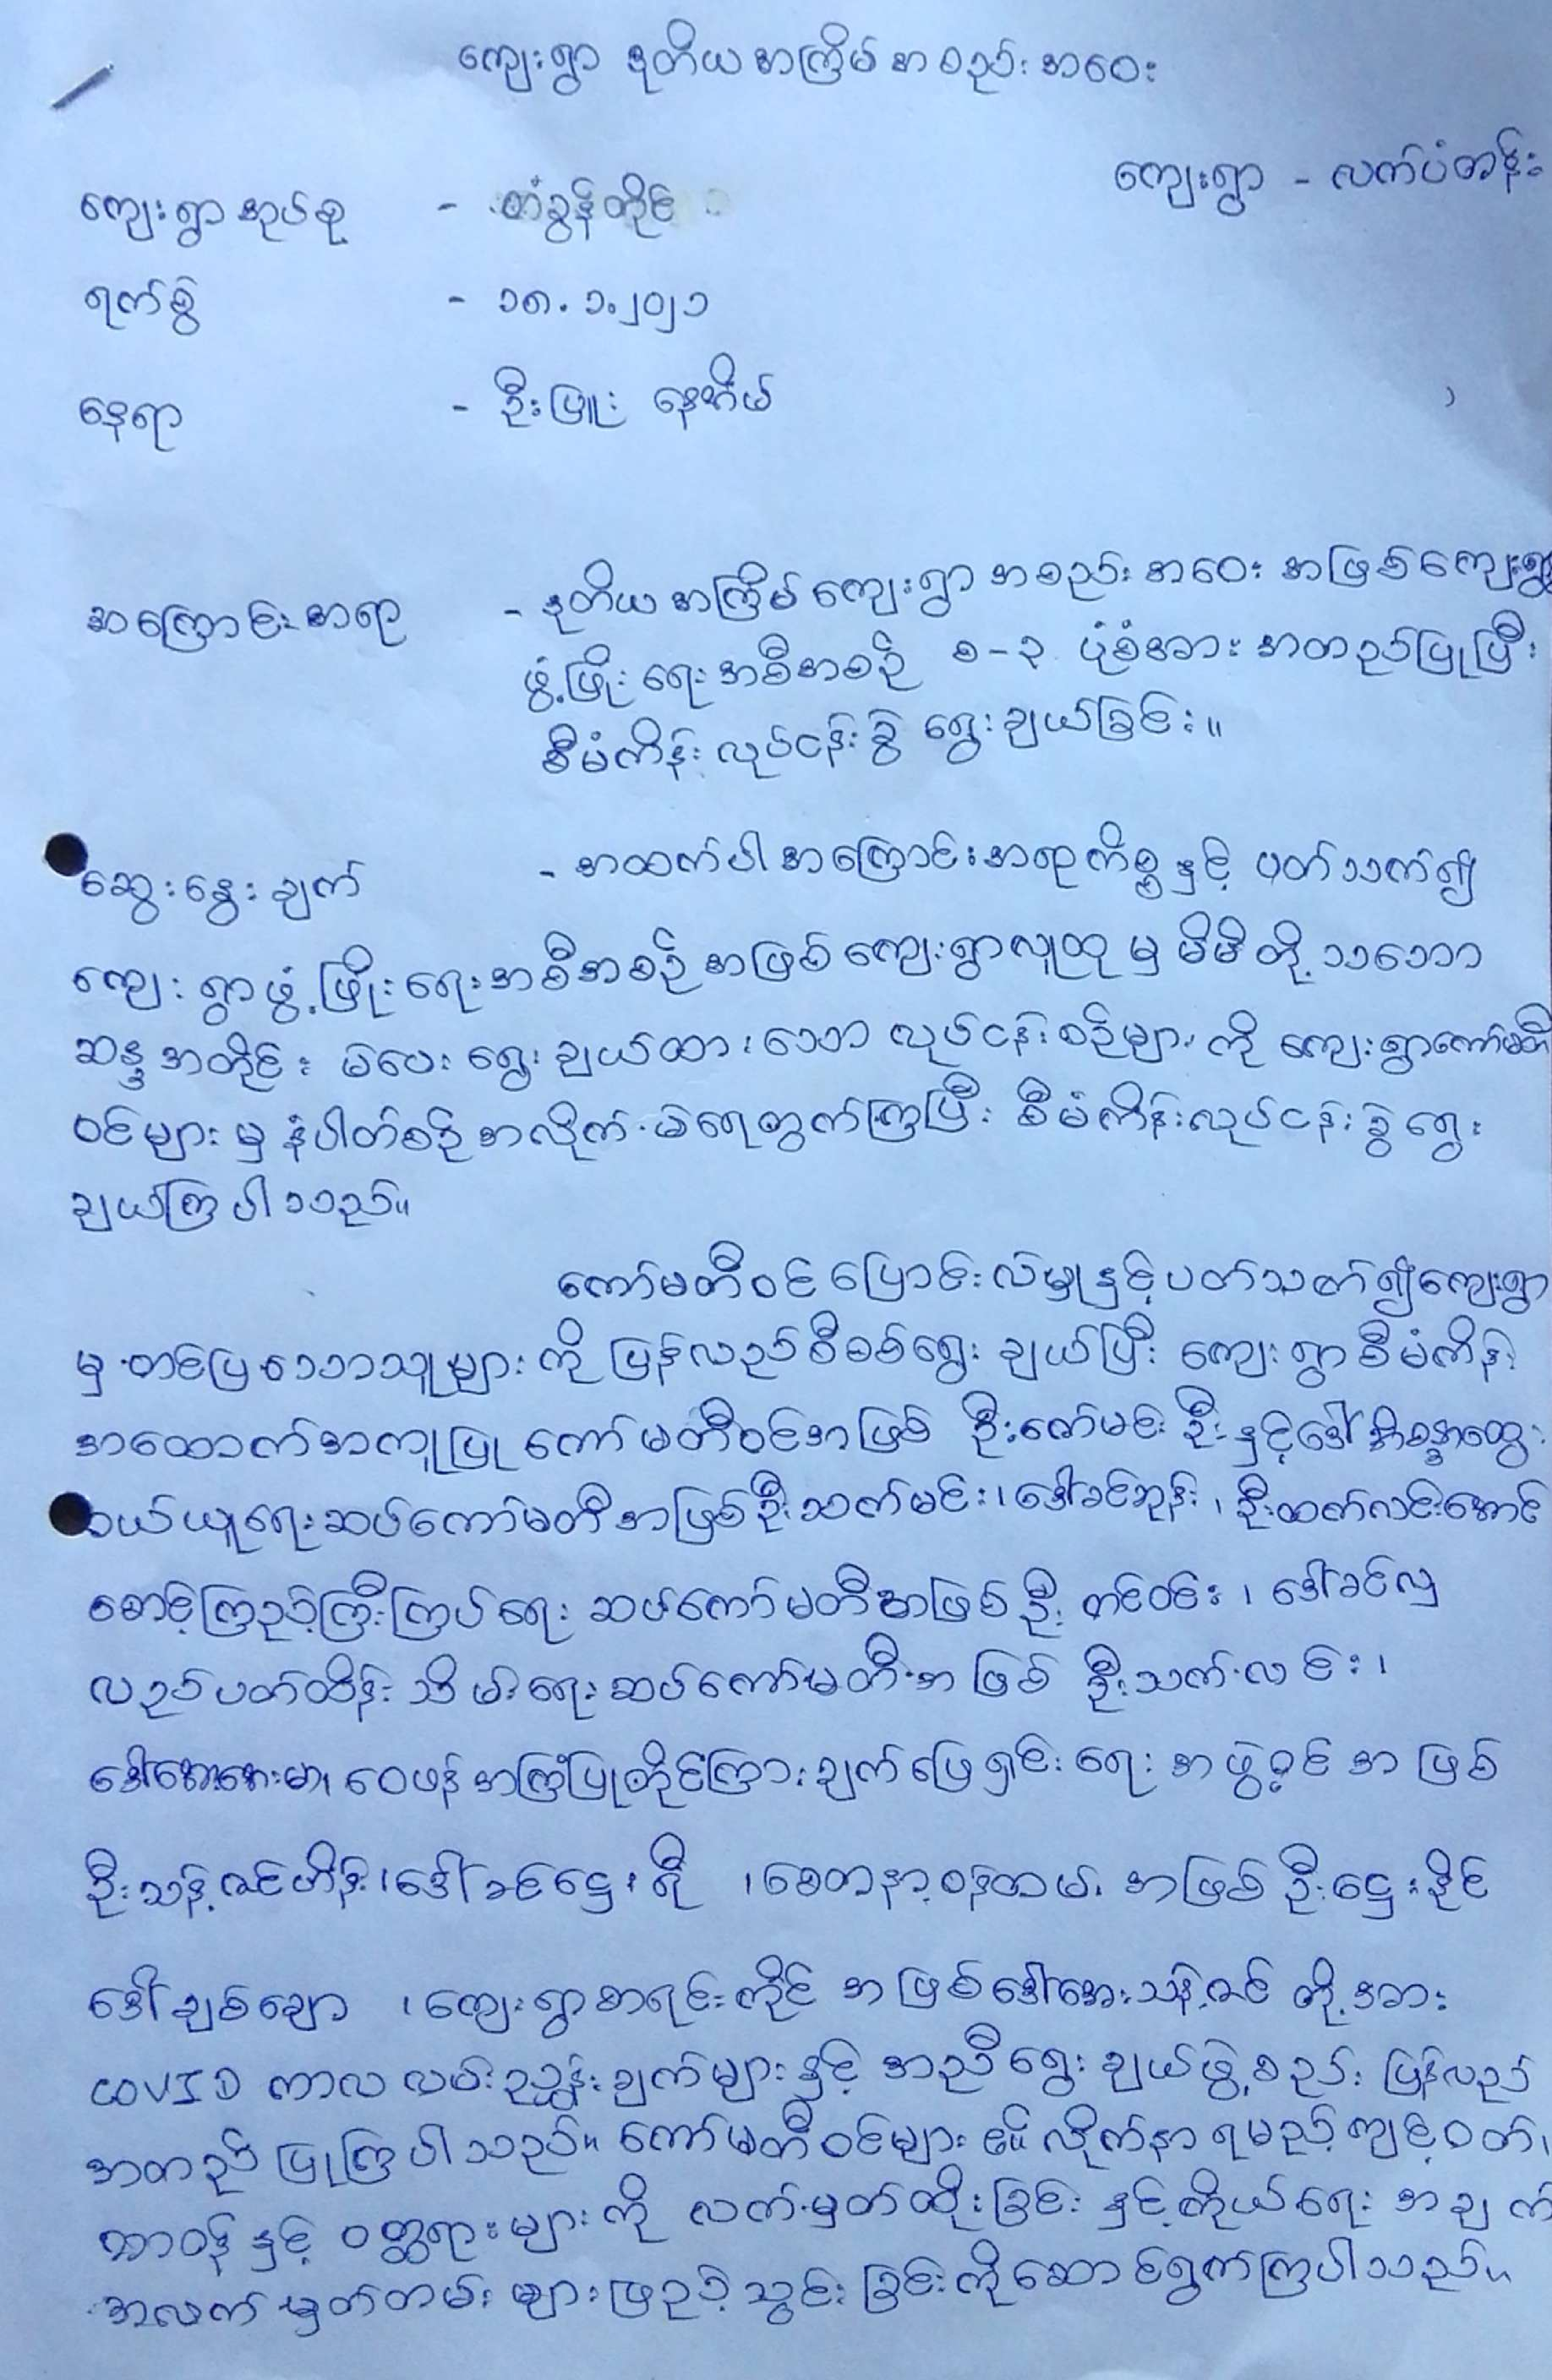 ကျေးရွာ ဒုတိယအကြိမ်အစည်းအဝေး
ကျေးရွာ - လက်ပံတန်း
ကျေးရွာအုပ်စု - တံခွန်တိုင်
ရက်စွဲ - ၁၈.၁.၂၀၂၁
နေရာ - ဦးဖြူး နေအိမ်
အကြောင်းအရာ - ဒုတိယအကြိမ်ကျေးရွာအစည်းအဝေးအဖြစ်ကျေးရွာ
ဖွံ့ဖြိုးရေးအစီအစဉ် စ-၃ ပုံစံအားအတည်ပြုပြီး
စီမံကိန်းလုပ်ငန်းခွဲ ရွေးချယ်ခြင်း။
ဆွေးနွေးချက် - အထက်ပါအကြောင်းအရာကိစ္စနှင့် ပတ်သက်၍
ကျေးရွာဖွံ့ဖြိုးရေးအစီအစဉ်အဖြစ်ကျေးရွာလူထုမှ မိမိတို့သဘော
ဆန္ဒအတိုင်း မဲပေးရွေးချယ်ထားသော လုပ်ငန်းစဉ်များကို ကျေးရွာကော်မတီ
ဝင်များမှနံပါတ်စဉ်အလိုက်မဲရေတွက်ကြပြီး စီမံကိန်းလုပ်ငန်းခွဲရွေး
ချယ်ကြပါသည်။
ကော်မတီဝင်ပြောင်းလဲမှုနှင့်ပတ်သတ်၍ကျေးရွာ
မှတင်ပြသောသူများကိုပြန်လည်စိစစ်ရွေးချယ်ပြီး ကျေးရွာစီမံကိန်း
အထောက်အကူပြုကော်မတီဝင်အဖြစ် ဦးဇော်မင်းဦးနှင့်ဒေါ်အိစန္ဒာထွေး
ဝယ်ယူရေးဆပ်ကော်မတီအဖြစ်ဦးသက်မင်း၊ဒေါ်ခင်ဘုန်း၊ဦးထက်လင်းအောင်
စောင့်ကြည့်ကြီးကြပ်ရေးဆပ်ကော်မတီအဖြစ်ဦးတင်ဝင်း၊ဒေါ်ခင်လှ
လည်ပတ်ထိန်းသိမ်းရေးဆပ်ကော်မတီအဖြစ် ဦးသက်လင်း၊
ဒေါ်အေးအေးမာ၊ဝေဖန်အကြံပြုတိုင်ကြားချက်ဖြေရှင်းရေးအဖွဲ့ဝင်အဖြစ်
ဦးသန့်ဇင်ဟိန်း၊ဒေါ်ခင်ဌေးရီ ၊စေတနာ့ဝန်ထမ်းအဖြစ်ဦးဌေးနိုင်
ဒေါ်ချစ်ချော ၊ကျေးရွာစာရင်းကိုင်အဖြစ်ဒေါ်အေးသန့်ဇင်တို့အား
COVID ကာလလမ်းညွှန်ချက်များနှင့်အညီရွေးချယ်ဖွဲ့စည်းပြန်လည်
အတည်ပြုကြပါသည်။ကော်မတီဝင်များ၏လိုက်နာရမည့်ကျင့်ဝတ်၊
တာဝန်နှင့်ဝတ္တရားများကိုလက်မှတ်ထိုးခြင်းနှင့်ကိုယ်ရေးအချက်
အလက်မှတ်တမ်းများဖြည့်သွင်းခြင်းကိုဆောင်ရွက်ကြပါသည်။